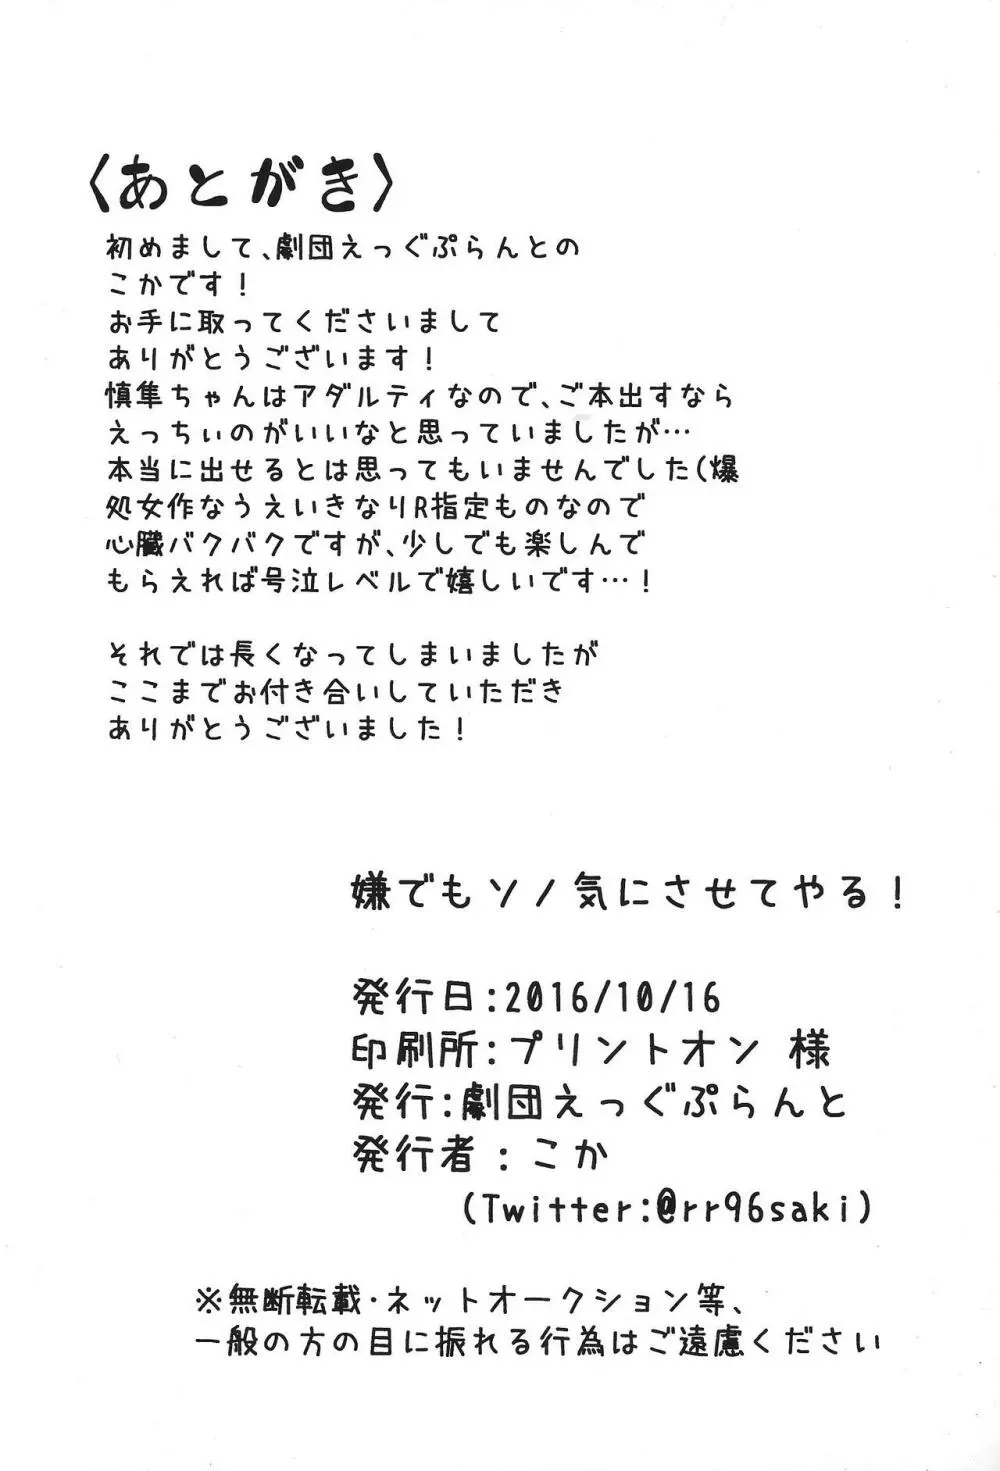 〈あとがき〉
初めまして、劇団えっぐぷらんとの
こかです！
お手に取ってくださいまして
ありがとうございます！
慎隼ちゃんはアダルティなので、ご本出すなら
えっちぃのがいいなと思っていましたが…
本当に出せるとは思ってもいませんでした(爆
処女作なうえいきなりR指定ものなので
心臓バクバクですが、少しでも楽しんで
もらえれば号泣レベルで嬉しいです…！
それでは長くなってしまいましたが
ここまでお付き合いしていただき
ありがとうございました！
嫌でもソノ気にさせてやる！
発行日:2016/10/16
印刷所:プリントオン 様
発行:劇団えっぐぷらんと
発行者：こか
(Twitter:@rr96saki)
※無断転載・ネットオークション等、
一般の方の目に振れる行為はご遠慮ください